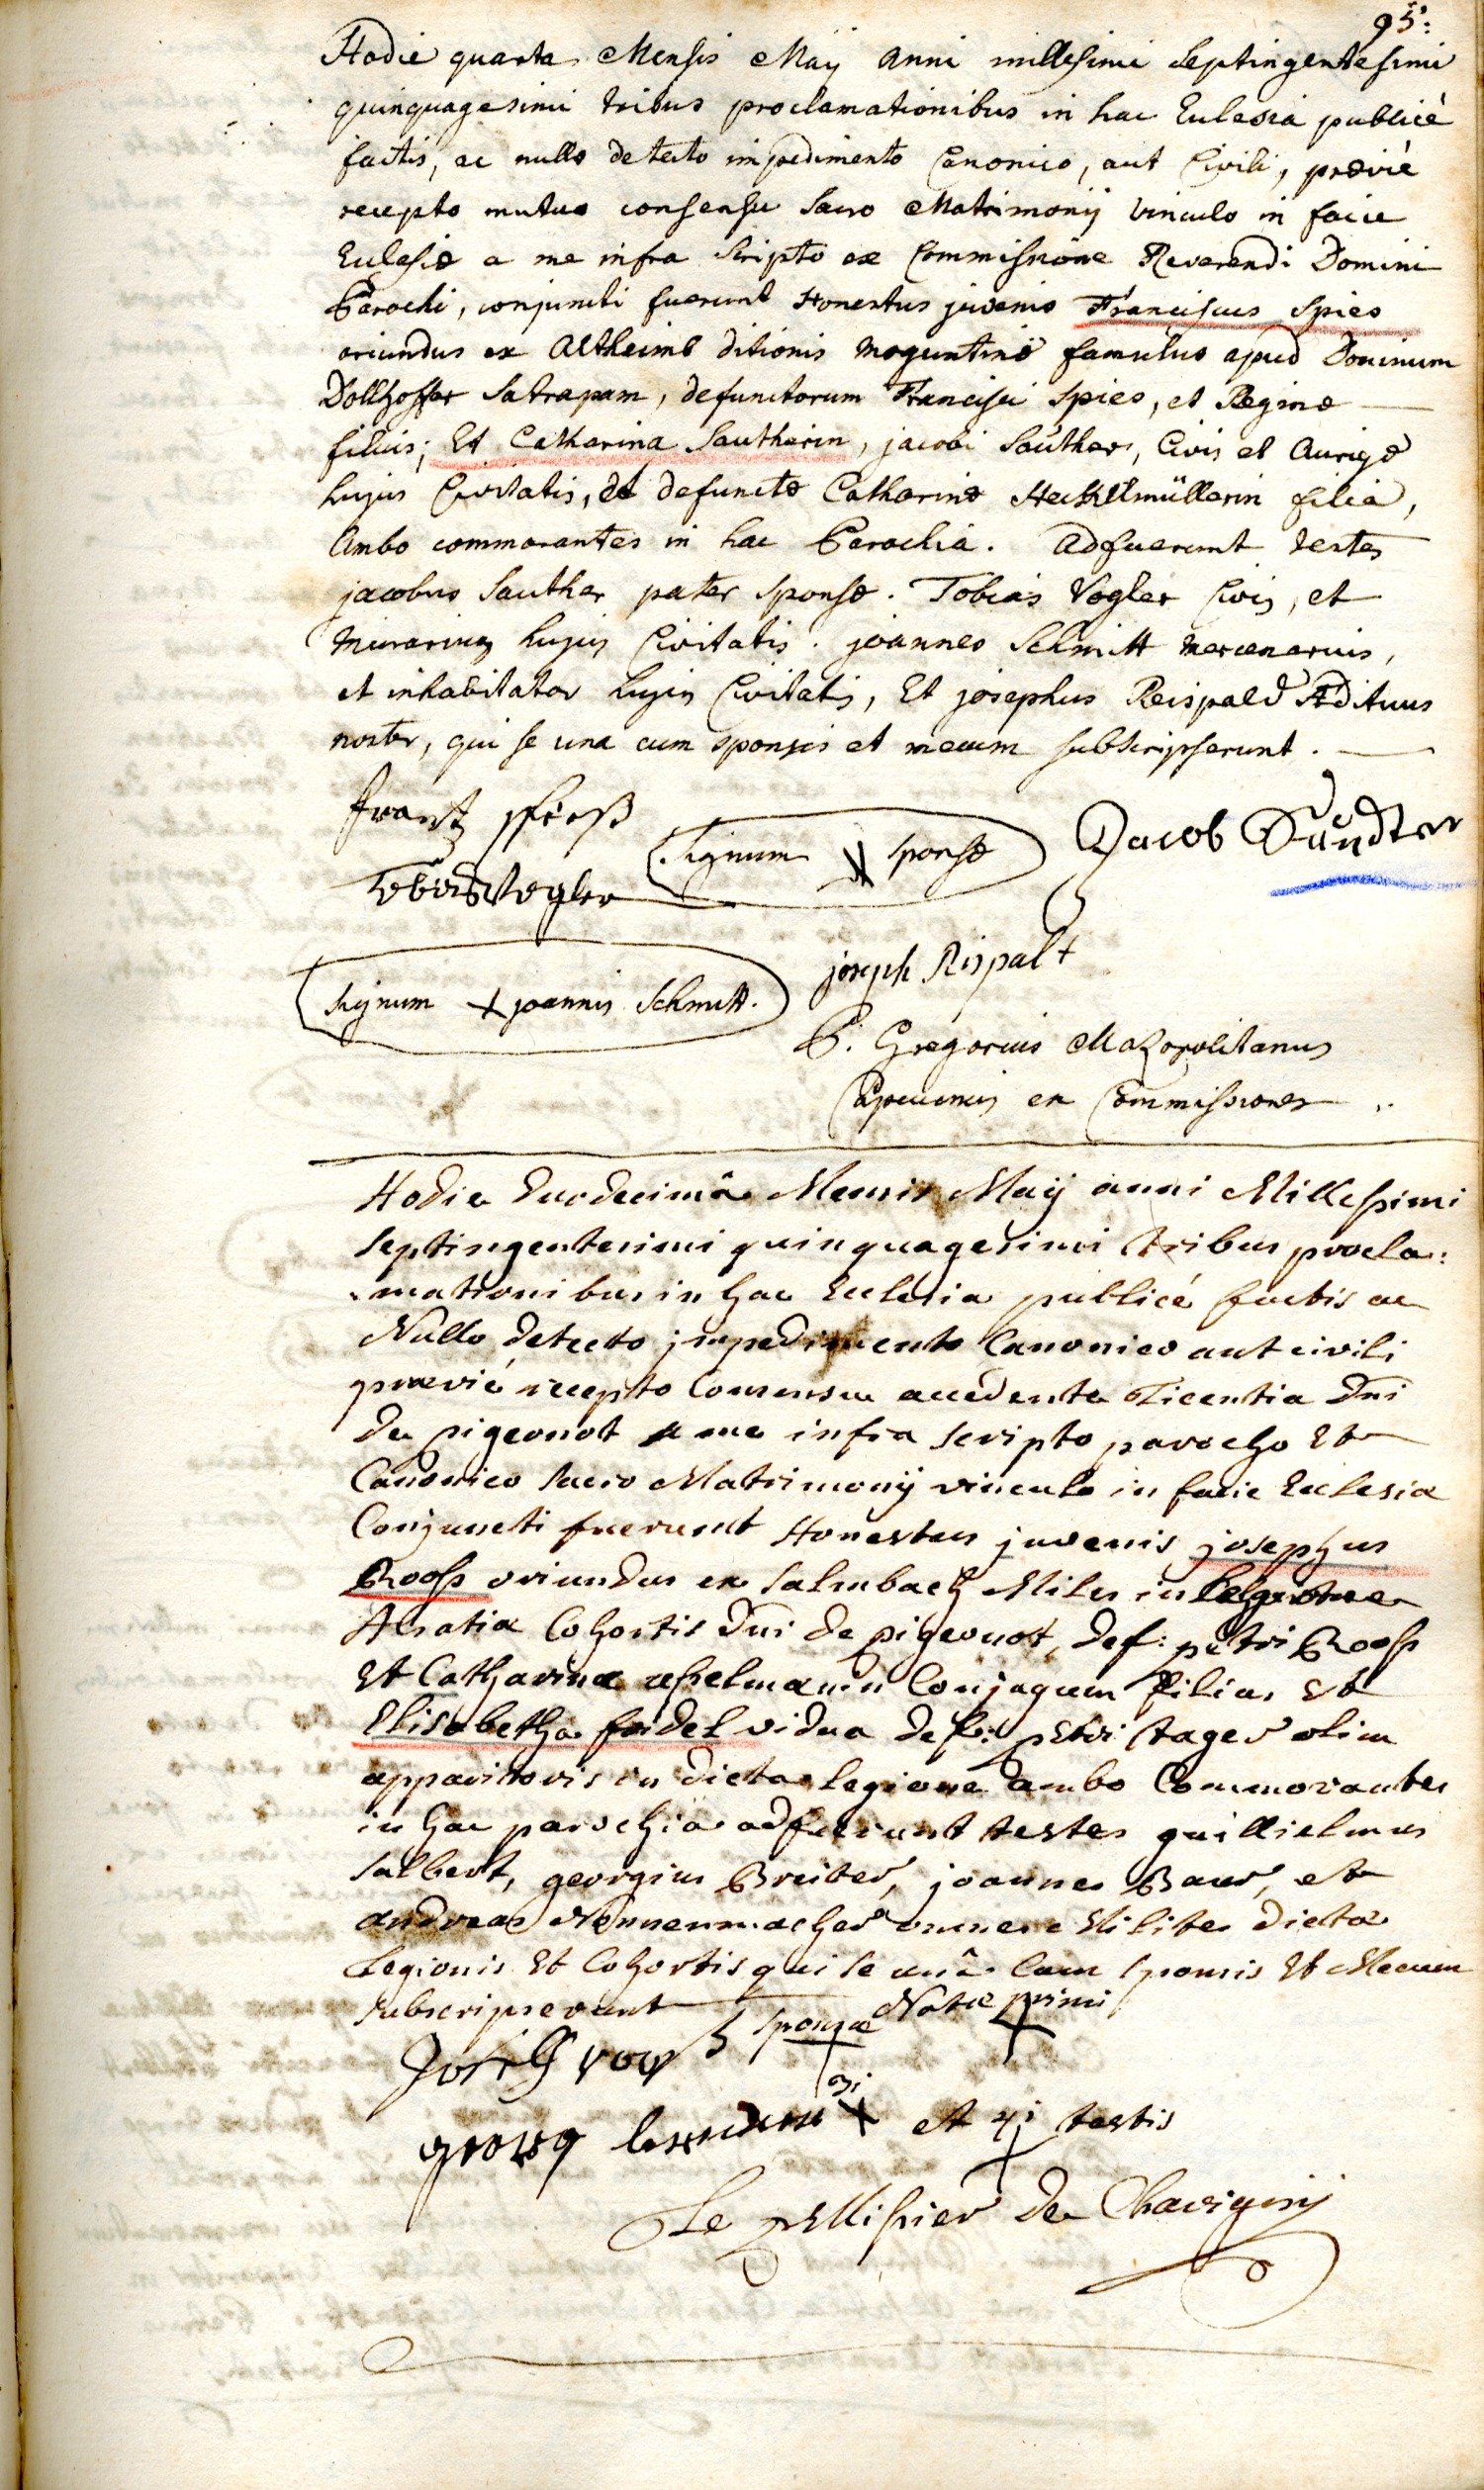 95:
Hodie quarta Mensis Maÿ anni millesimi septingentesimi
quinquagesimi tribus proclamationibus in hac Eclesia publicè
factis, ac nullo detecto impedimento Canonico, aut Civili, præviè
recepto mutuo consensu sacro Matrimonÿ vinculo in facie
Eclesiæ a me infra scripto ex Commissione Reverendi Domini
Parochi, conjuncti fuerunt Honestus juvenis Franciscus Spies
oriundus ex Altheimb ditionis moguntinæ famulus apud Dominum
Dollhoffer Satrapam, defunctorum Francisci Spies, et Reginæ
filius; Et Catharina Sautherin, jacobi Sauther, Civis et Aurigæ
hujus Civitatis, et defunctæ Catharinæ Heckelmüllerin filia,
Ambo commorantes in hac Parochia. Adfuerunt testes
jacobus Sauther pater sponsæ. Tobias Vogler Civis, et
Murarius hujus Civitatis. joannes Schmitt mercenarius,
et inhabitator hujus Civitatis, Et josephus Reispald Ædituus
noster, qui se una cum sponsis et mecum subscripserunt.
frantz spieß
Signum sponsæ
Jacob Saudter
Tobias Vogler
joseph Rispalt
Signum + joannis Schmitt.
P. Gregorius Mazopolitanus
Capucinus ex Commissione
Hodie duodecimâ Mensis Maÿ anni Millesimi
septingentesimi quinquagesimi tribus procla:
mationibus in hac Ecclesia publicé factis ac
Nullo detecto jmpedimento Canonico aut civili
prævié recepto Consensu accedente Licentia Dni
de pigeonot a me infra scripto parocho Et
Canonico sacro Matrimonÿ vinculo in facie Ecclesiæ
Conjuncti fuerunt Honestus juvenis josephus
Rooss oriundus ex salmbach Miles in
Alsatiæ Cohortis Dni de pigeonot, def: petri Rooss
Et Catharinæ Conjugum filius Et
Elisabetha fridel vidua def: petri tager olim
apparitoris in dicta legione ambo Commorantes
in hac parochia adfuerunt testes guillielmus
salbert, georgius Breiter, joannes Baur, et
andreas Nennenmacher omnes Milites dictæ
Legionis Et Cohortis qui se unâ Cum sponsis Et Mecum
subscripserunt
sponsæ Notæ primi
Joseph rooß
georg 3i et 4i testis
Le pellissier de Chavignÿ